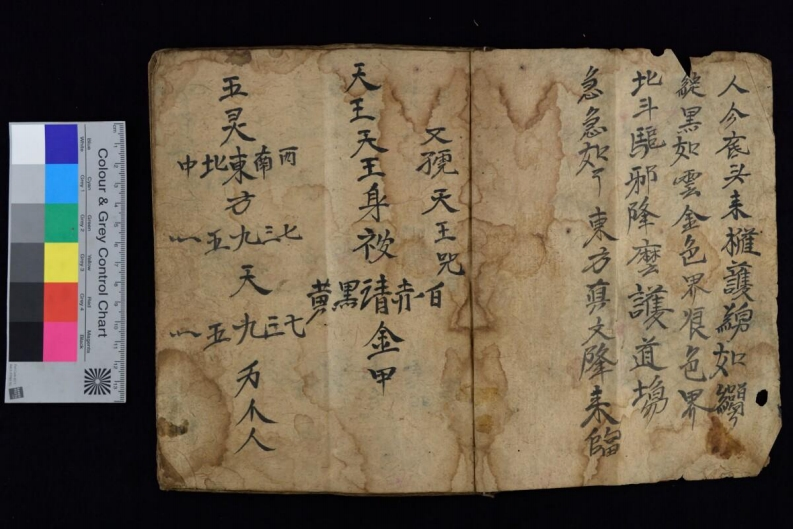 人今底头来擁護綿如纘
能黑如雲金色界銀色界
北斗驅邪降麽護道場
急急如了東方真文降来臨
又 天王咒
天王天王身被靖金甲
白
赤
黑
黄
五灵東方九天九万人
西
南
北
中
七
三
五
一
七
三
五
一
Colour & Grey Control Chart
Blue
Cyan
Green
Yellow
Red
Magenta
White
Grey 1
Grey 2
Grey 3
Grey 4
Black